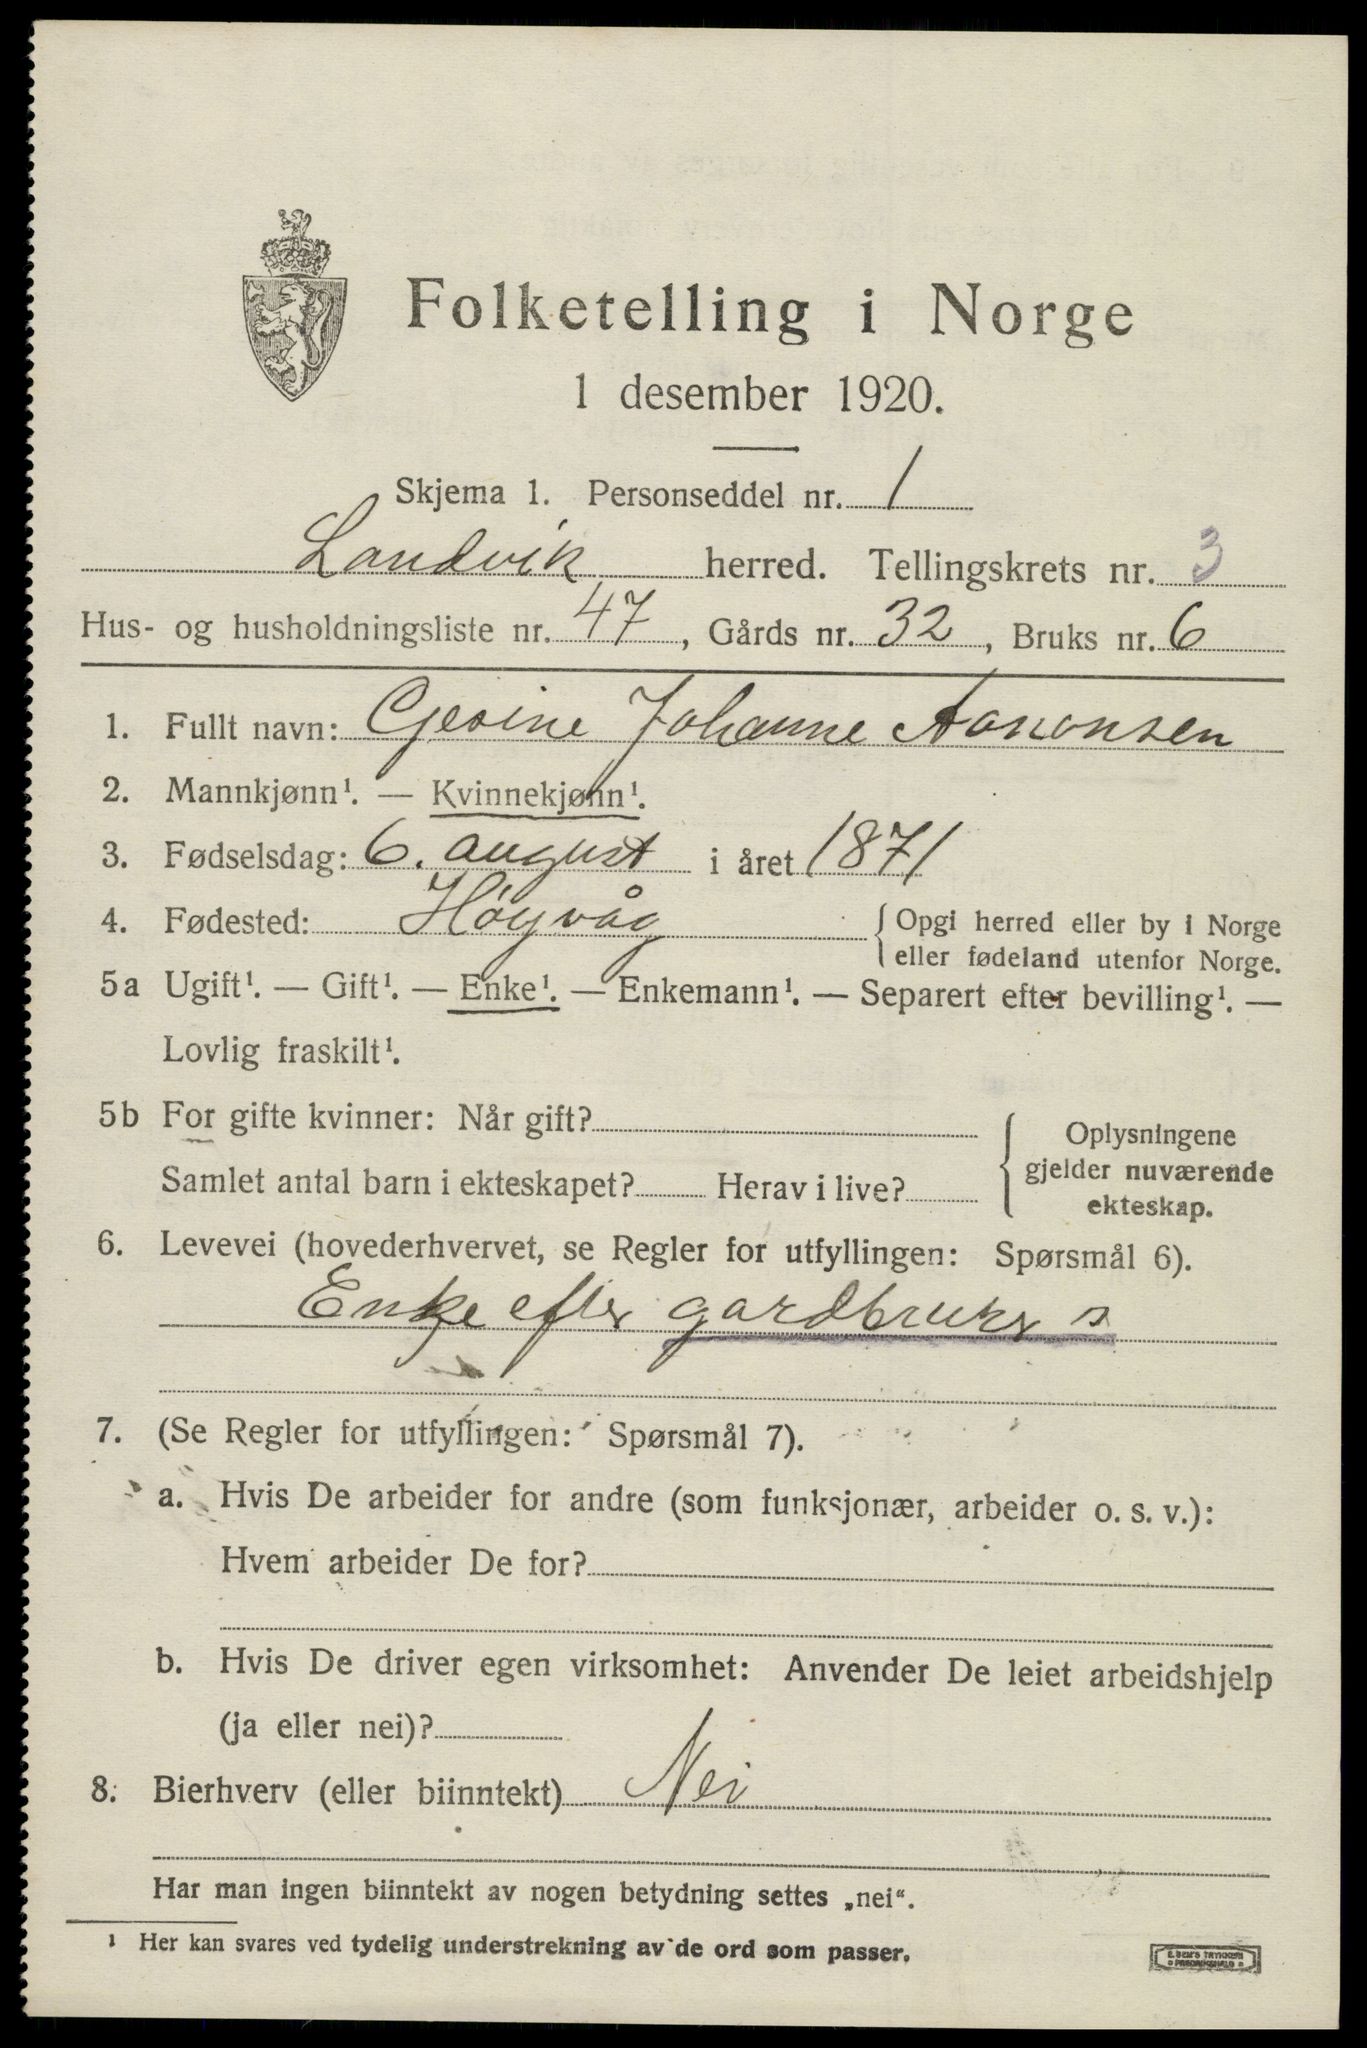 Folketelling i Norge
1 desember 1920.
Skjema 1. Personseddel nr. 1
Landvik herred. Tellingskrets nr. 3
Hus- og husholdningsliste nr. 47, Gårds nr. 32, Bruks nr. 6
1. Fullt navn: Gesine Johanne Aanonsen
2. Mannkjønn¹. — Kvinnekjønn¹.
3. Fødselsdag: 6. august i året 1871
4. Fødested: Höyvåg { Opgi herred eller by i Norge
eller fødeland utenfor Norge.
5a Ugift¹. — Gift¹. — Enke¹. — Enkemann¹. — Separert efter bevilling¹. —
Lovlig fraskilt¹.
5b For gifte kvinner: Når gift?
Samlet antal barn i ekteskapet? Herav i live?
{ Oplysningene
gjelder nuværende
ekteskap.
6. Levevei (hovederhvervet, se Regler for utfyllingen: Spørsmål 6).
Enke efter gardbruker
7. (Se Regler for utfyllingen: Spørsmål 7).
a. Hvis De arbeider for andre (som funksjonær, arbeider o. s. v.):
Hvem arbeider De for?
b. Hvis De driver egen virksomhet: Anvender De leiet arbeidshjelp
(ja eller nei)?
8. Bierhverv (eller biinntekt) Nei
Har man ingen biinntekt av nogen betydning settes „nei“.
¹ Her kan svares ved tydelig understrekning av de ord som passer.
E. SEM'S TRYKKERI
FREDRIKSHALD